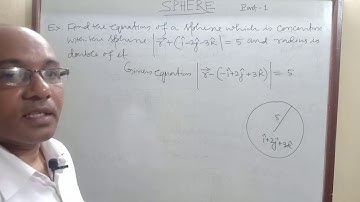 SPHERE Part-1
Ex. Find the equation of a sphere which is concentric
with the sphere |r⃗+(î-2ĵ-3k̂)| = 5 and radius is
double of it
Given equation |r⃗-(-î+2ĵ+3k̂)| = 5
5
-î+2ĵ+3k̂